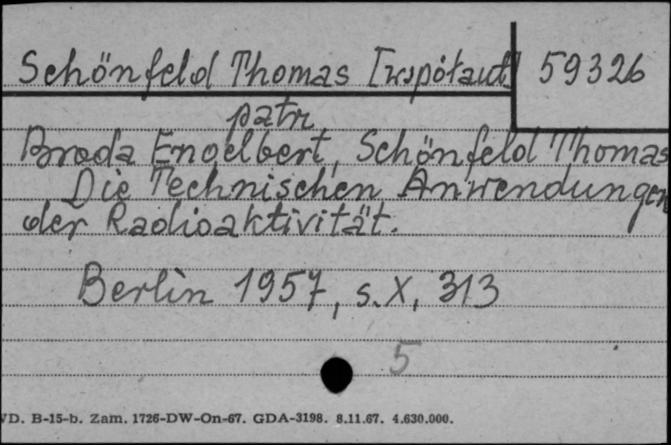 Schönfeld Thomas [współaut.] 59326
patr
Broda Engelbert, Schönfeld Thomas
Die Technischen Anwendungen
der Radioaktivität.
Berlin 1957, s. X, 313
5
VD. B-15-b. Zam. 1726-DW-On-67. GDA-3198. 8.11.67. 4.630.000.